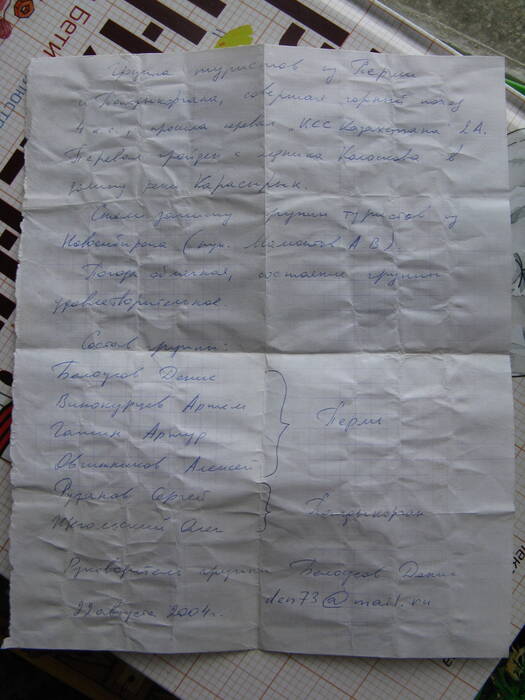 Группа туристов из Перми
и Талдыкоргана, совершая горный поход
4 к.с., прошла перевал "КСС Казахстана" 2А.
Перевал пройден с ледника Колокова в
долину реки Карасырык.
Сняли записку группы туристов из
Новосибирска (рук. Мамонтов А В).
Погода облачная, состояние группы
удовлетворительное.
Состав группы:
Белоусов Денис
Винокурцев Артём
Гатин Артур
Овчинников Алексей
Пермь
Рузанов Сергей
Олег
Талдыкорган
Руководитель группы Белоусов Денис
22 августа 2004г. den73@mail.ru
Бети